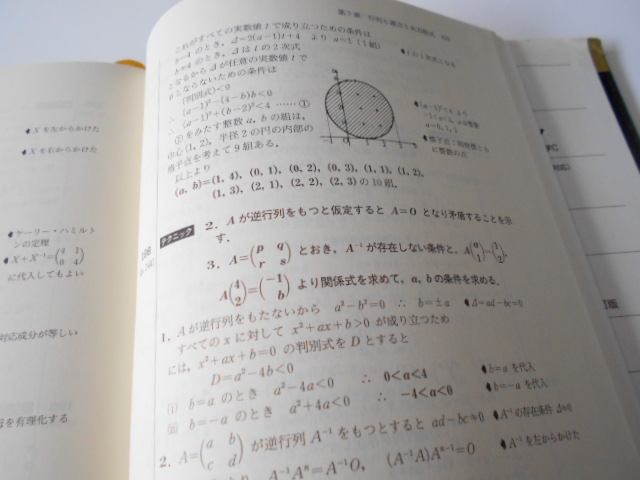 第7章 行列と連立1次方程式
これがすべての実数値 t で成り立つための条件は
b=4 のとき, Δ=2(a−1)t+4 より a=1 (1組)
b≠4 のとき, Δ は t の2次式
であるから Δ が任意の実数値 t で
0とならないための条件は
(判別式)<0
∴ (a−1)²−(4−b)b<0
∴ (a−1)²+(b−2)²<4 ……①
①をみたす整数 a, b の組は,
中心(1, 2), 半径2の円の内部の
格子点を考えて9組ある.
以上より
(a, b)=(1, 4), (0, 1), (0, 2), (0, 3), (1, 1), (1, 2),
(1, 3), (2, 1), (2, 2), (2, 3) の10組.
(a−1)²<4 より
−1<a<3, より整数
a=0, 1, 2
格子点:両座標とも
に整数の点
テクニック
2. A が逆行列をもつと仮定すると A=O となり矛盾することを示
す.
3. A=(p q
r s) とおき, A⁻¹ が存在しない条件と, A(0
1)=(1
A(4
2)=(−1
b) より関係式を求めて, a, b の条件を求める.
1. A が逆行列をもたないから a²−b²=0 ∴ b=±a
Δ=ad−bc=0
すべての x に対して x²+ax+b>0 が成り立つため
には, x²+ax+b=0 の判別式を D とすると
D=a²−4b<0
(i) b=a のとき a²−4a<0 ∴ 0<a<4
b=a を代入
(ii) b=−a のとき a²+4a<0 ∴ −4<a<0
b=−a を代入
2. A=(a b
c d) が逆行列 A⁻¹ をもつとすると ad−bc≠0
A⁻¹ の存在条件 Δ≠0
より A⁻¹Aⁿ=A⁻¹O, (A⁻¹A)Aⁿ⁻¹=O
A⁻¹ を左からかけた
X を左からかけた
X を右からかけた
ケーリー・ハミルト
ンの定理
に代入してもよい
対応成分が等しい
を有理化する